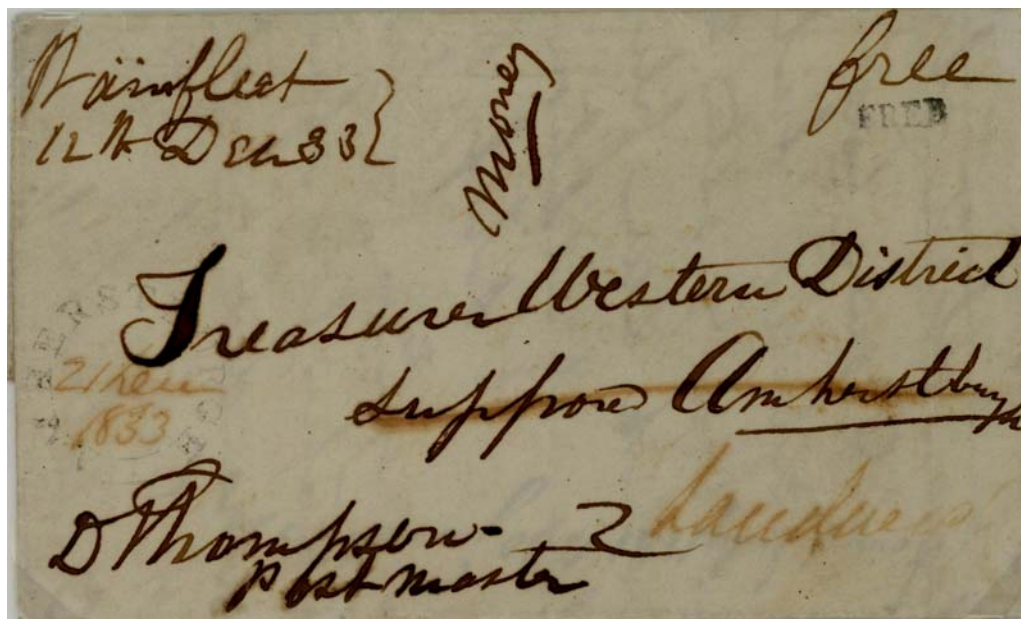 Wainfleet
12th Decr 33
Money
free
FREE
Treasurer Western District
suppose Amherstburgh
AMHERSTBURGH
21 Decr
1833
D Thompson
Postmaster